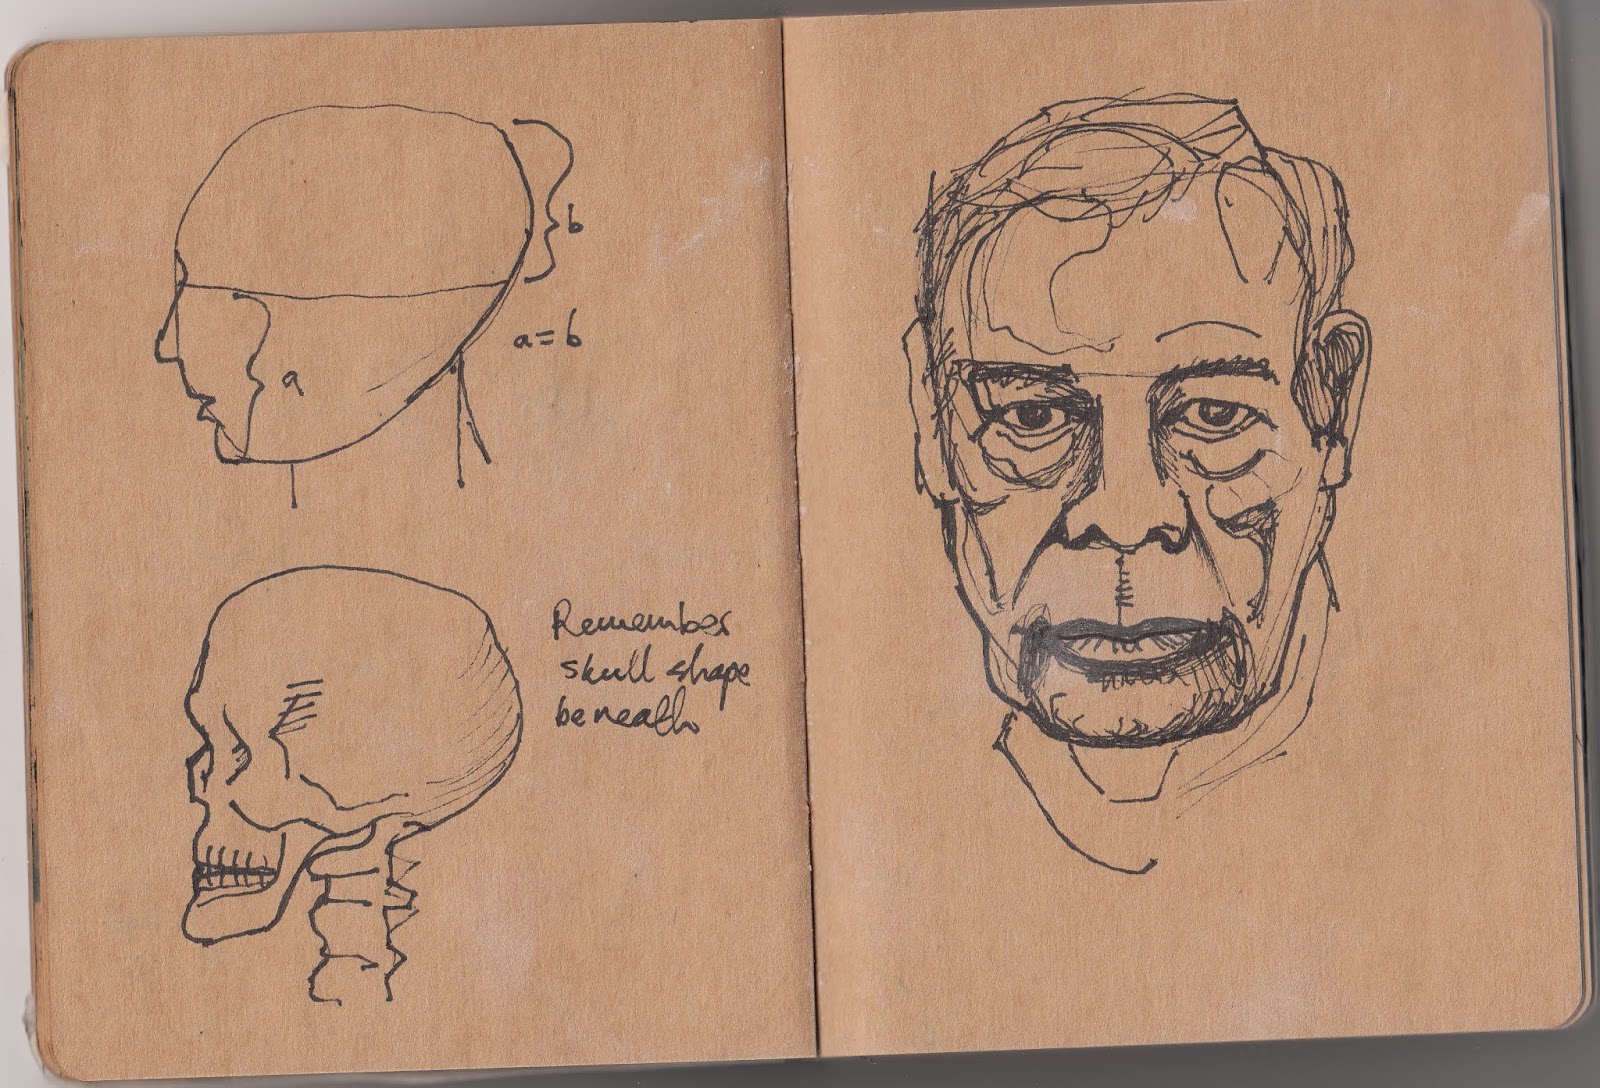 b
a
a = b
Remember
skull shape
beneath